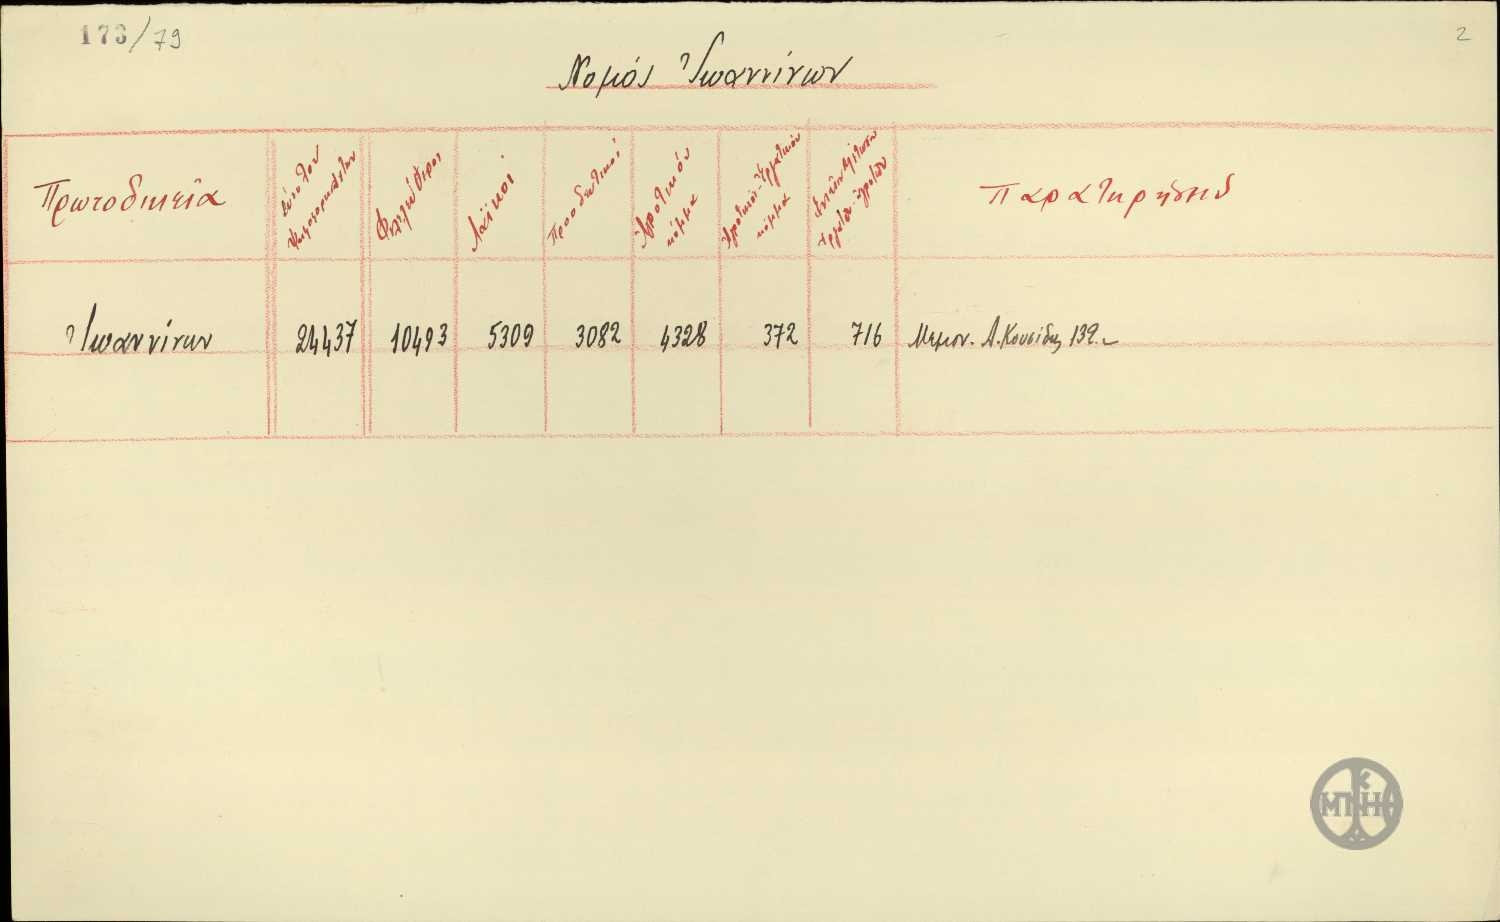 173/79
2
Νομός Ἰωαννίνων
Πρωτοδικεῖα
Σύνολον
Ψηφισμάντων
Φιλελεύθεροι
Λαϊκοί
Προοδευτικοί
Ἀγροτικόν
κόμμα
Ἀγροτικόν-Ἐργατικόν
κόμμα
Ἐργατῶν-Ἀγροτῶν
Παρατηρήσεις
Ἰωαννίνων
24437
10493
5309
3082
4328
372
716
Μεμον. Α. Κουσίδης 139.
ΜΠΝΗ